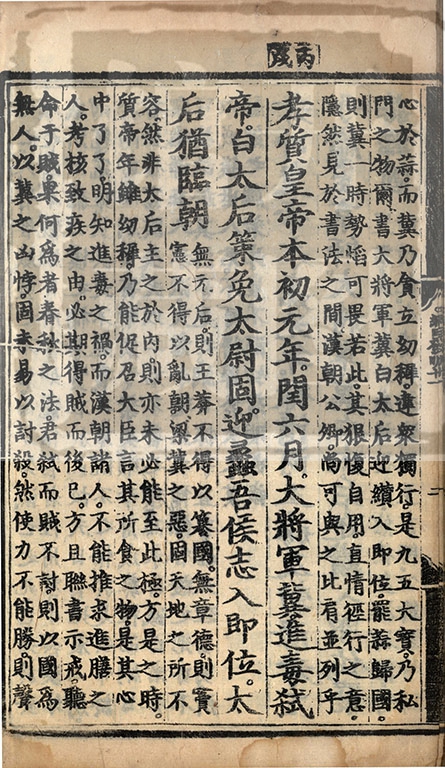 丙戌
心於蒜。而冀乃貪立幼穉。違衆獨行。是九五大寶。乃私
門之物爾。書大將軍冀白太后迎纘入即位。罷蒜歸國。
則冀一時勢焰可畏若此。其狠愎自用。直情徑行之意。
隱然見於書法之間。漢朝公卿。尚可與之比肩並列乎
孝質皇帝本初元年。閏六月。大將軍冀進毒弒
帝。白太后策免太尉固。迎蠡吾侯志入即位。太
后猶臨朝
無元后。則王莽不得以簒國。無章德。則竇
憲不得以亂朝。梁冀之惡。固天地之所不
容。然非太后主之於內。則亦未必能至此極。方是之時。
質帝年雖幼穉。乃能促召大臣。言其所食之物。是其心
中了了。明知進毒之禍。而漢朝諸人。不能推求進膳之
人。考核致疾之由。必其得賊而後已。方且聯書示戒。聽
命于賊。果何為者。春秋之法。君弒而賊不討。則以國為
無人。以冀之凶悖。固李易以討殺。然使力不能勝。則聲